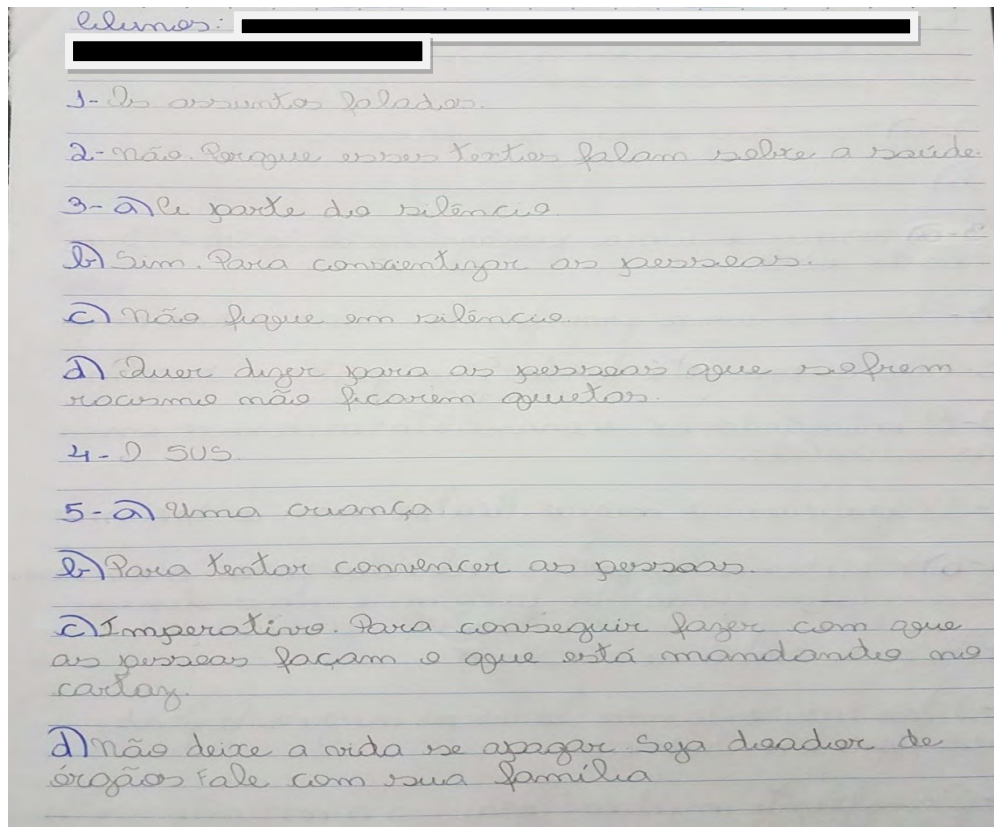 Alunos:
1- Os assuntos falados.
2- Não. Porque esses textos falam sobre a saúde.
3- a) A parte do silêncio
b) Sim. Para conscientizar as pessoas.
c) Não fique em silêncio.
d) Quer dizer para as pessoas que sofrem
racismo não ficarem quietas.
4- O SUS.
5- a) Uma criança
b) Para tentar convencer as pessoas.
c) Imperativo. Para conseguir fazer com que
as pessoas façam o que está mandando no
cartaz.
d) Não deixe a vida se apagar Seja doador de
órgãos Fale com sua família